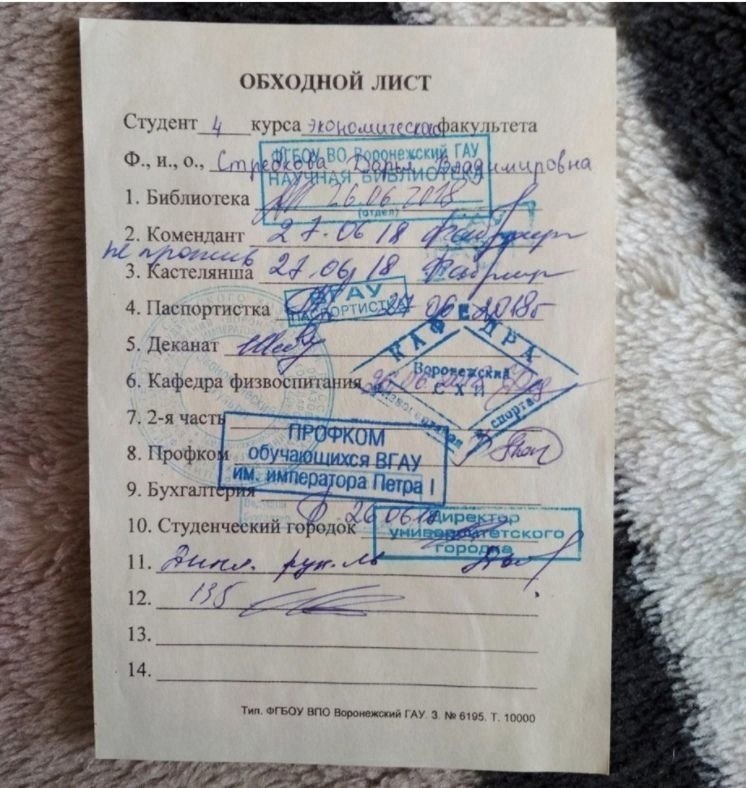 ОБХОДНОЙ ЛИСТ
Студент 4 курса экономического факультета
Ф., и., о., Стребкова Дарья Владимировна
ФГБОУ ВО Воронежский ГАУ
НАУЧНАЯ БИБЛИОТЕКА
(отдел)
1. Библиотека 26.06.2018
2. Комендант 27.06 18
не против
3. Кастелянша 27.06.18
ВГАУ
ПАСПОРТИСТКА
4. Паспортистка 27 06 2018г
5. Деканат
КАФЕДРА
Воронежский
СХИ
спорта
6. Кафедра физвоспитания
7. 2-я часть
ПРОФКОМ
обучающихся ВГАУ
им. императора Петра I
8. Профком
9. Бухгалтерия
10. Студенческий городок 26 06 18
Директор
университетского
городка
11. Дипл. рук-ль
12. 135
13.
14.
Тип. ФГБОУ ВПО Воронежский ГАУ. З. № 6195. Т. 10000